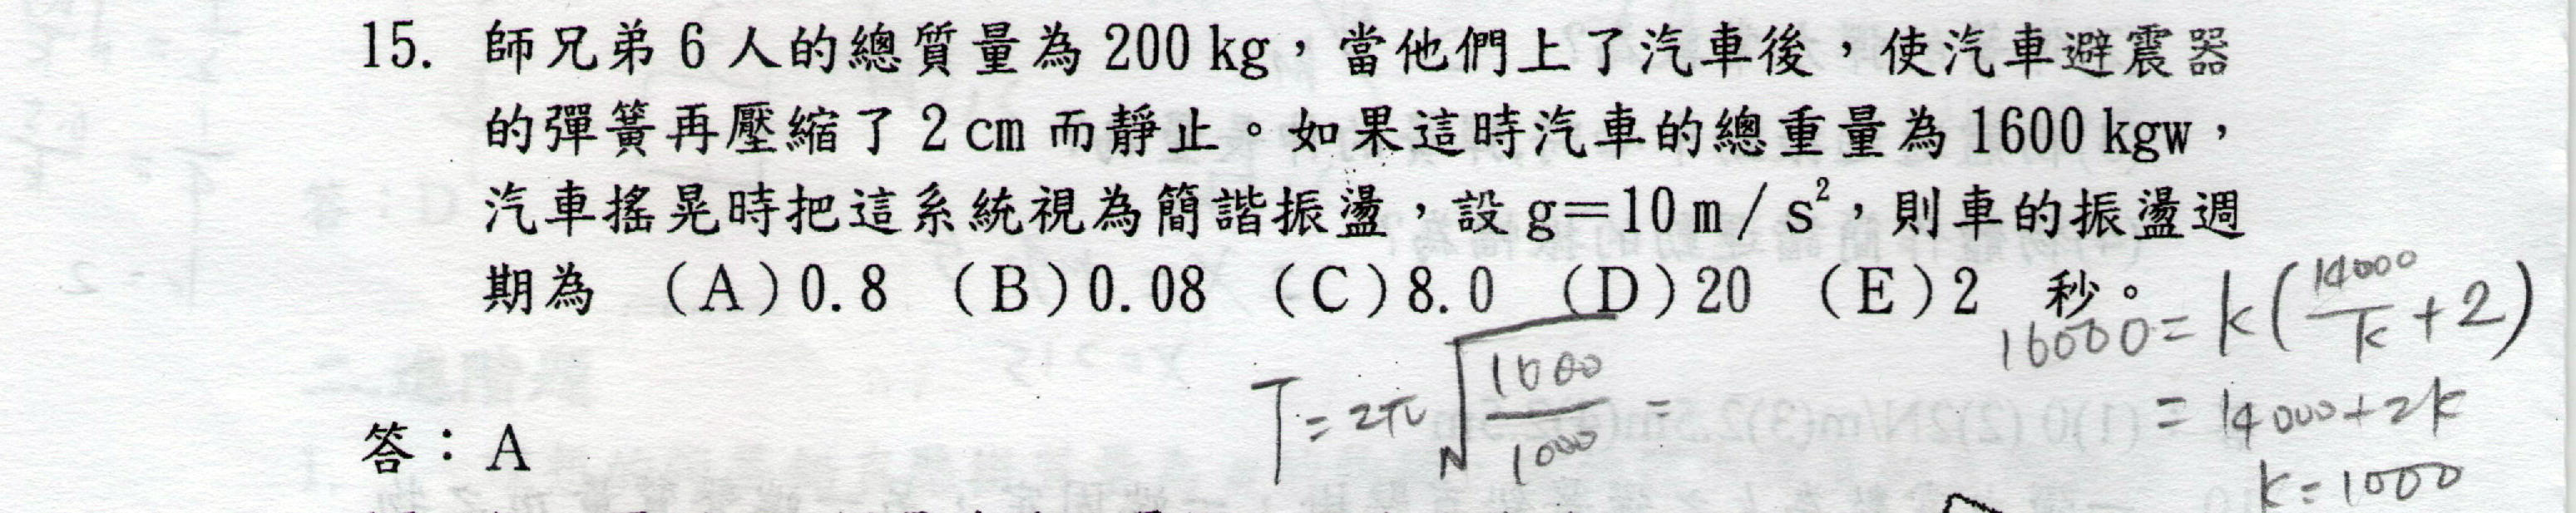 15. 師兄弟 6 人的總質量為 200 kg，當他們上了汽車後，使汽車避震器
的彈簧再壓縮了 2 cm 而靜止。如果這時汽車的總重量為 1600 kgw，
汽車搖晃時把這系統視為簡諧振盪，設 g＝10 m／s²，則車的振盪週
期為 （A）0.8 （B）0.08 （C）8.0 （D）20 （E）2 秒。
16000 = k(14000/k + 2)
= 14000 + 2k
k = 1000
T = 2π√(1600/1000) =
答：A